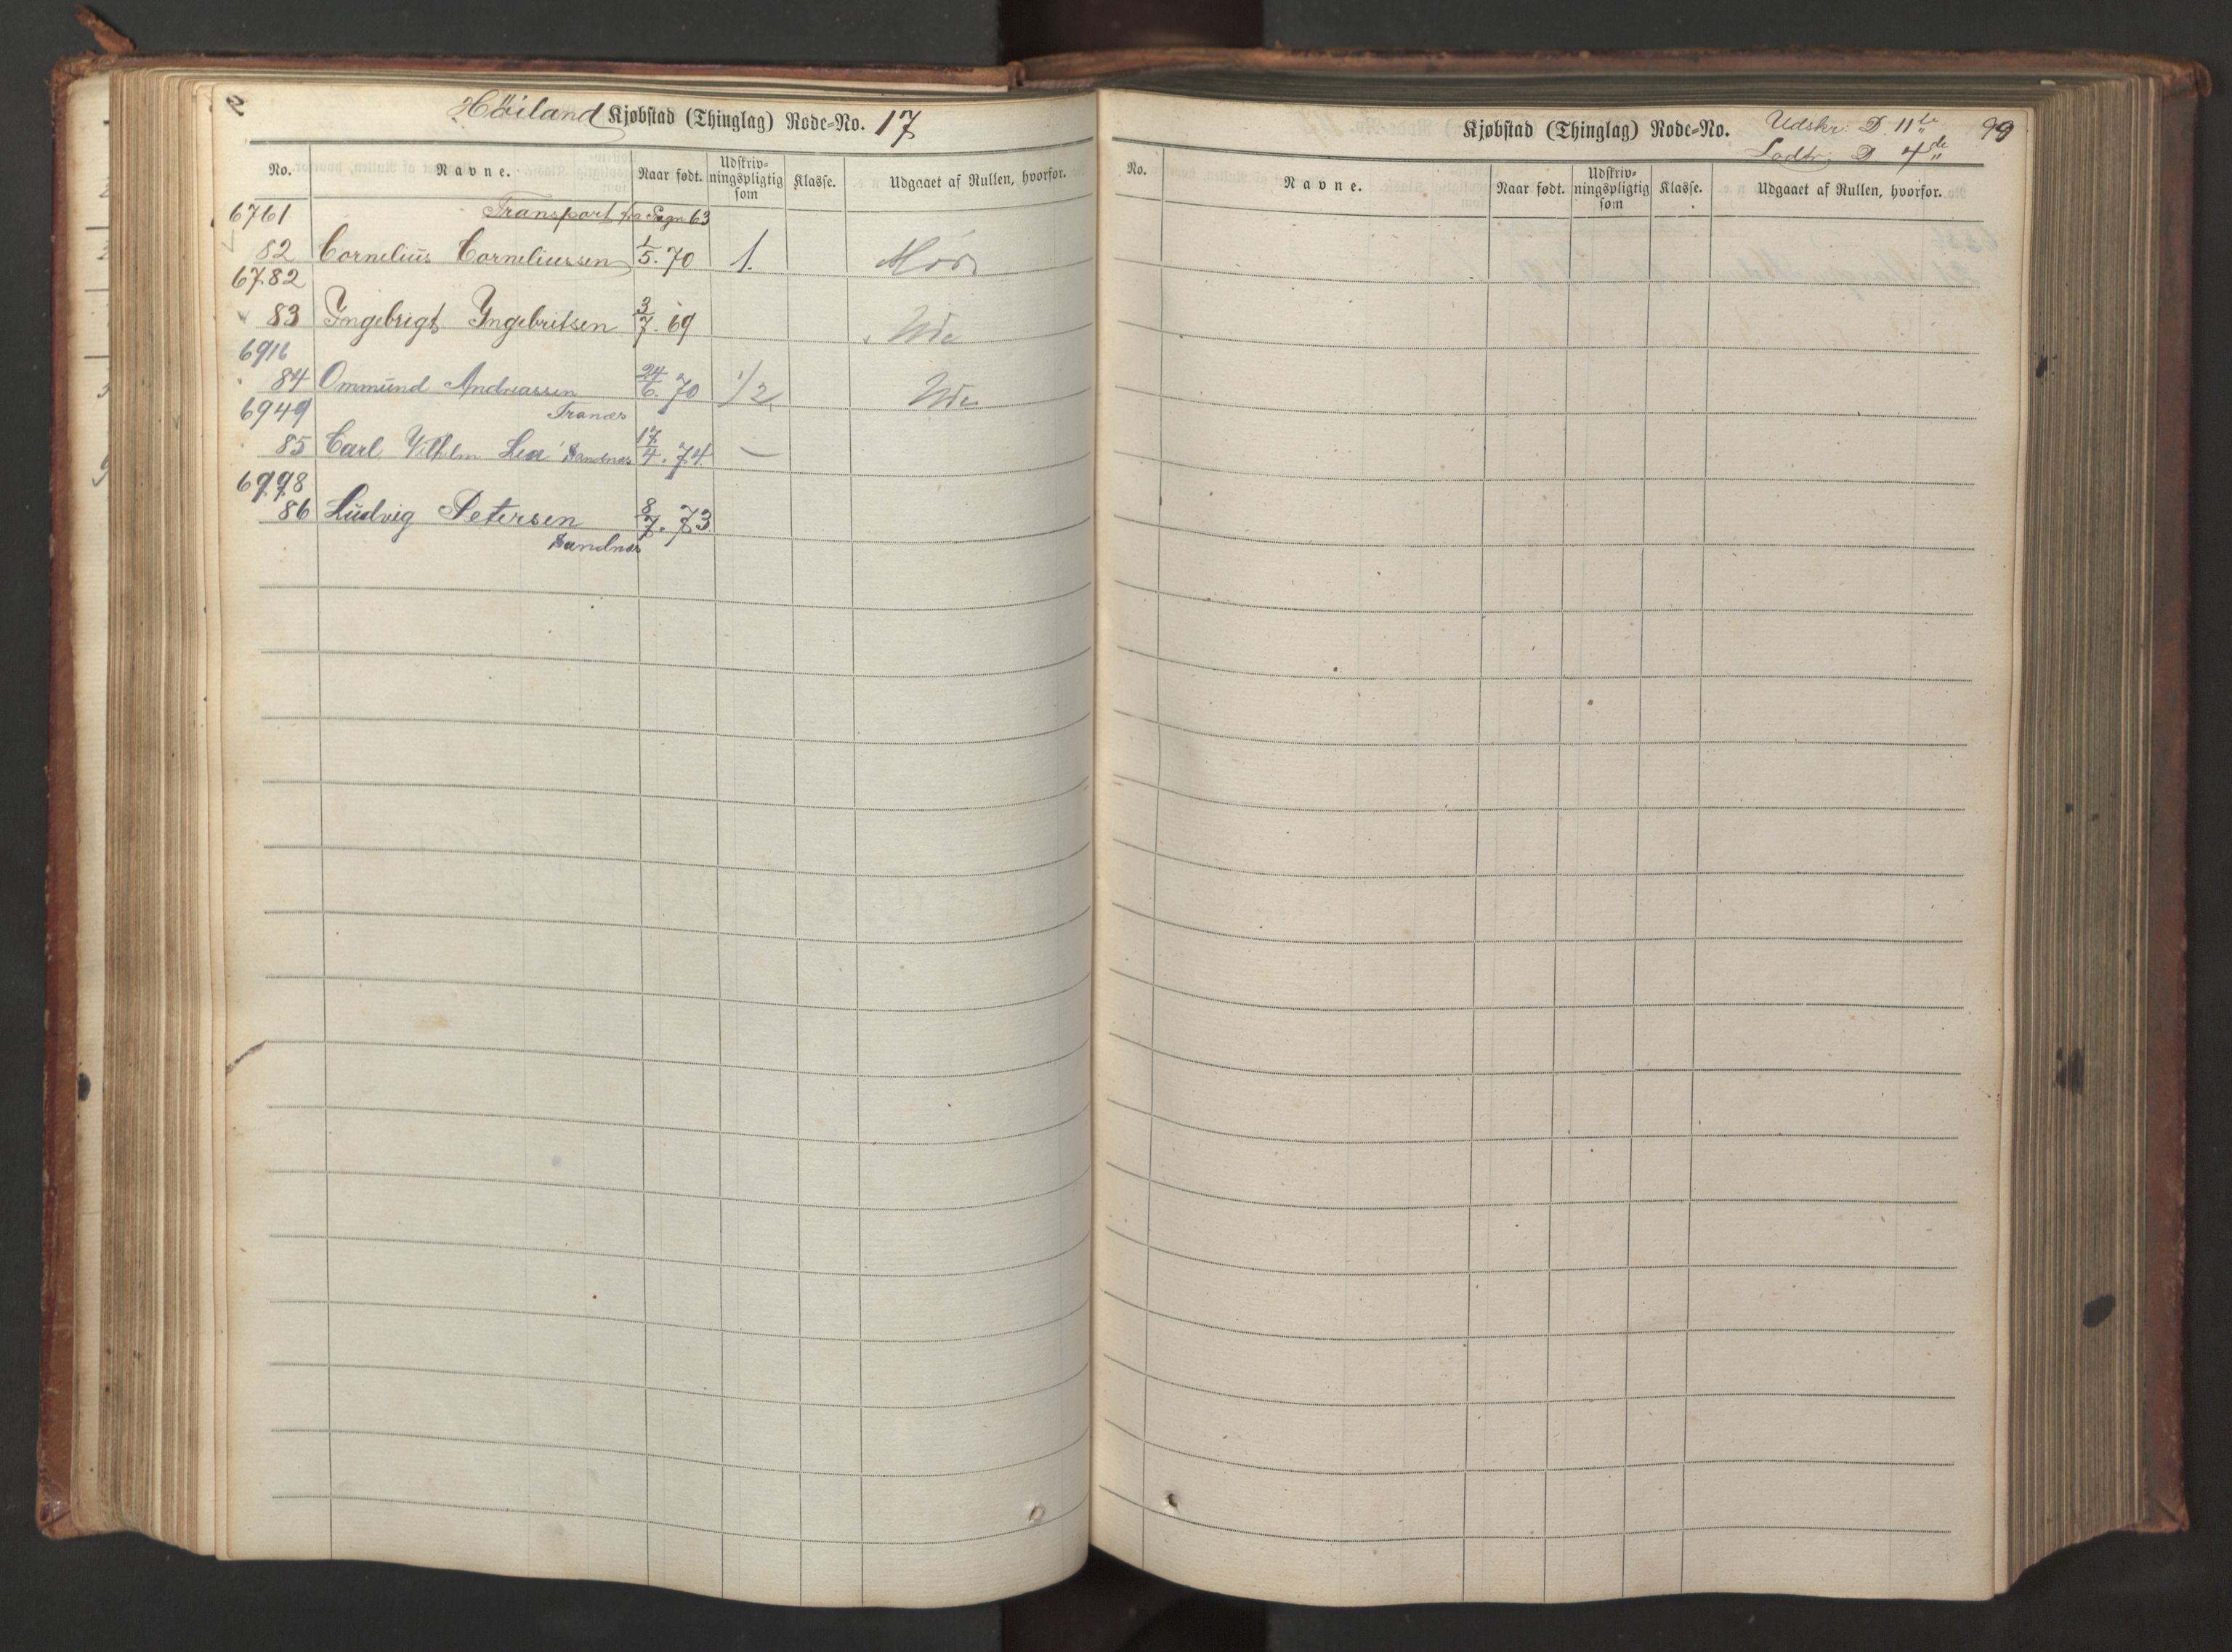 Höiland Kjøbstad (Thinglag) Rode=No. 17
No. Navne. Naar født. Udskriv=ningspligtig som Klasse. Udgaaet af Rullen, hvorfor.
6761 Transport fra Pagn 63
82 Cornelius Corneliussen 1/5. 70 1.
6782
83 Ingebrigt Ingebritsen 3/7. 69 Ude
6916
84 Ommund Andreassen 24/6. 70 1/2 Ude
6949 Tranæs
85 Carl Vilhelm Lea Sandnæs 17/4. 74. —
6998
86 Ludvig Petersen 8/7. 73
Sandnæs
Kjøbstad (Thinglag) Rode=No. Udskr: D. 11te 99
Lodtr: D 4de
No. Navne. Naar født. Udskriv=ningspligtig som Klasse. Udgaaet af Rullen, hvorfor.